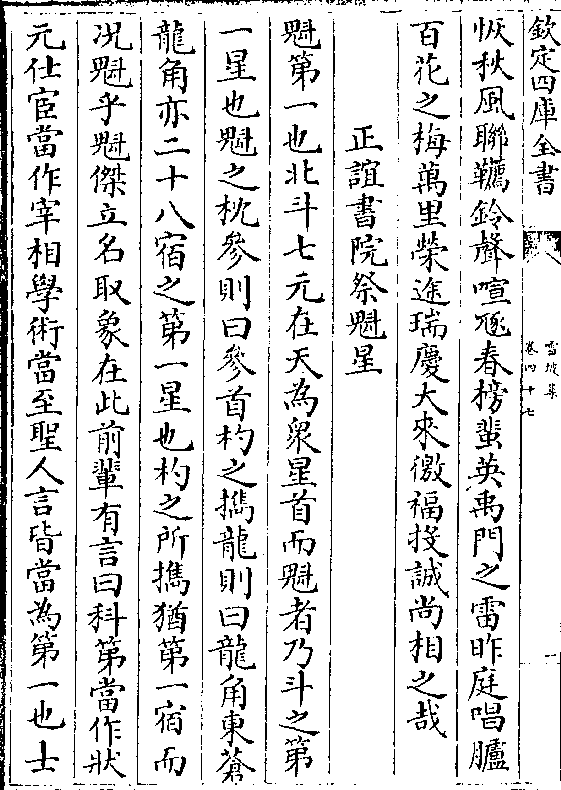 欽定四庫全書
雪坡集
卷四十七
一
恢秋風聯鑣鈴聲喧
春榜蜚英禹門之雷昨庭唱臚
百花之梅萬里榮途瑞慶大來徼福投誠尚相之哉
正誼書院祭魁星
魁第一也北斗七元在天為衆星首而魁者乃斗之第
一星也魁之枕參則曰參首杓之擕龍則曰龍角東蒼
龍角亦二十八宿之第一星也杓之所擕猶第一宿而
况魁乎魁傑立名取象在此前輩有言曰科第當作狀
元仕宦當作宰相學術當至聖人言皆當為第一也士